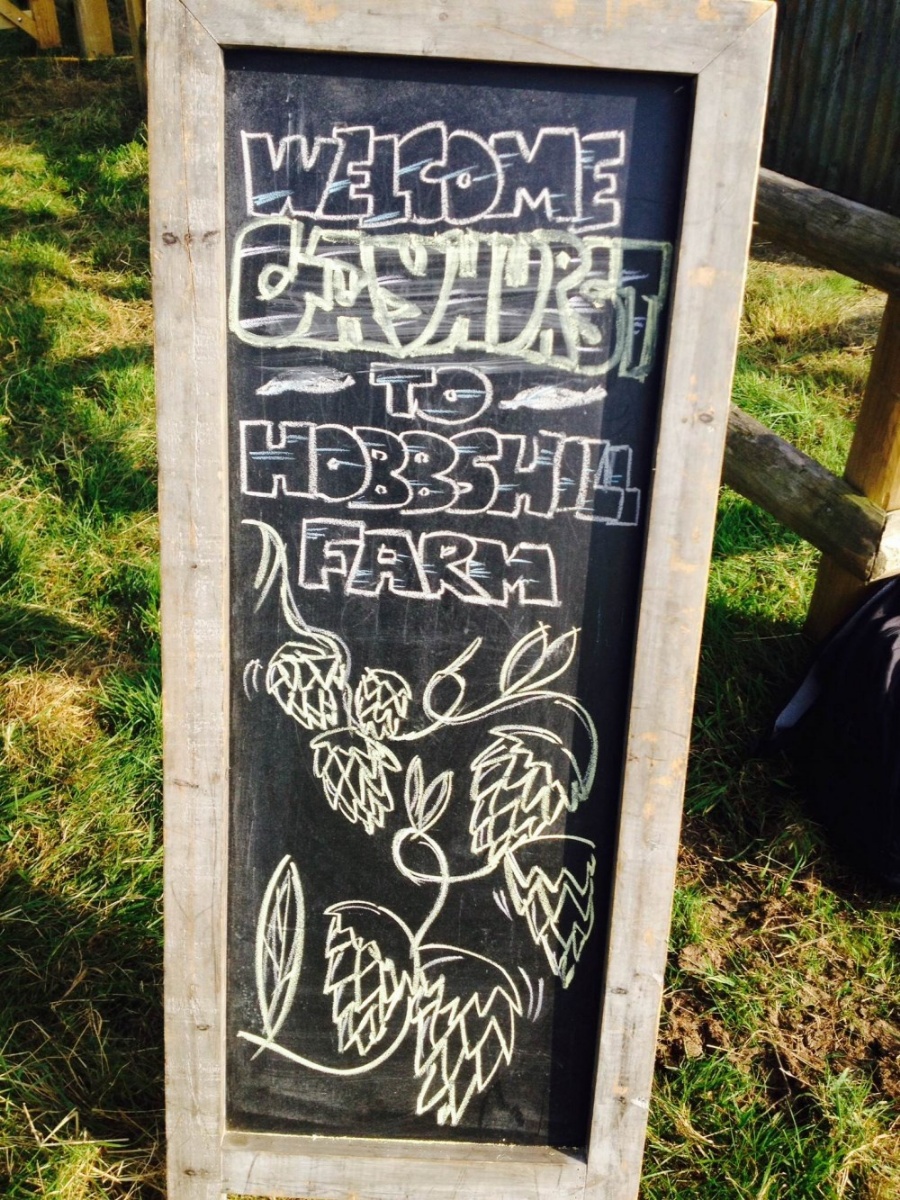 WELCOME
TO
HOBBSHILL
FARM